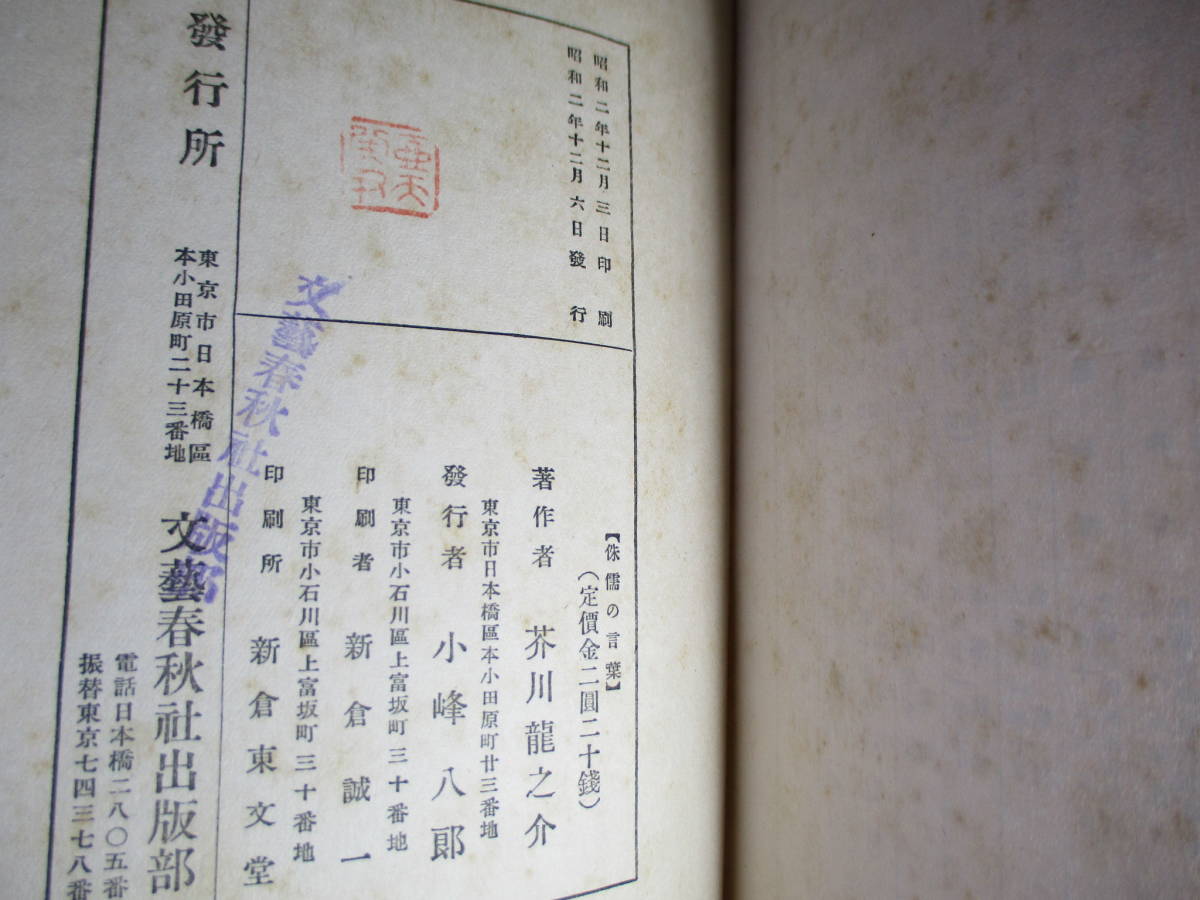 昭和二年十二月三日印刷
昭和二年十二月六日發行
【侏儒の言葉】
(定價金二圓二十錢)
著作者 芥川龍之介
東京市日本橋區本小田原町廿三番地
發行者 小峰八郞
東京市小石川區上富坂町三十番地
印刷者 新倉誠一
東京市小石川區上富坂町三十番地
印刷所 新倉東文堂
文藝春秋社出版部
發行所
東京市日本橋區
本小田原町二十三番地
文藝春秋社出版部
電話日本橋二八〇五番
振替東京七四三七八番